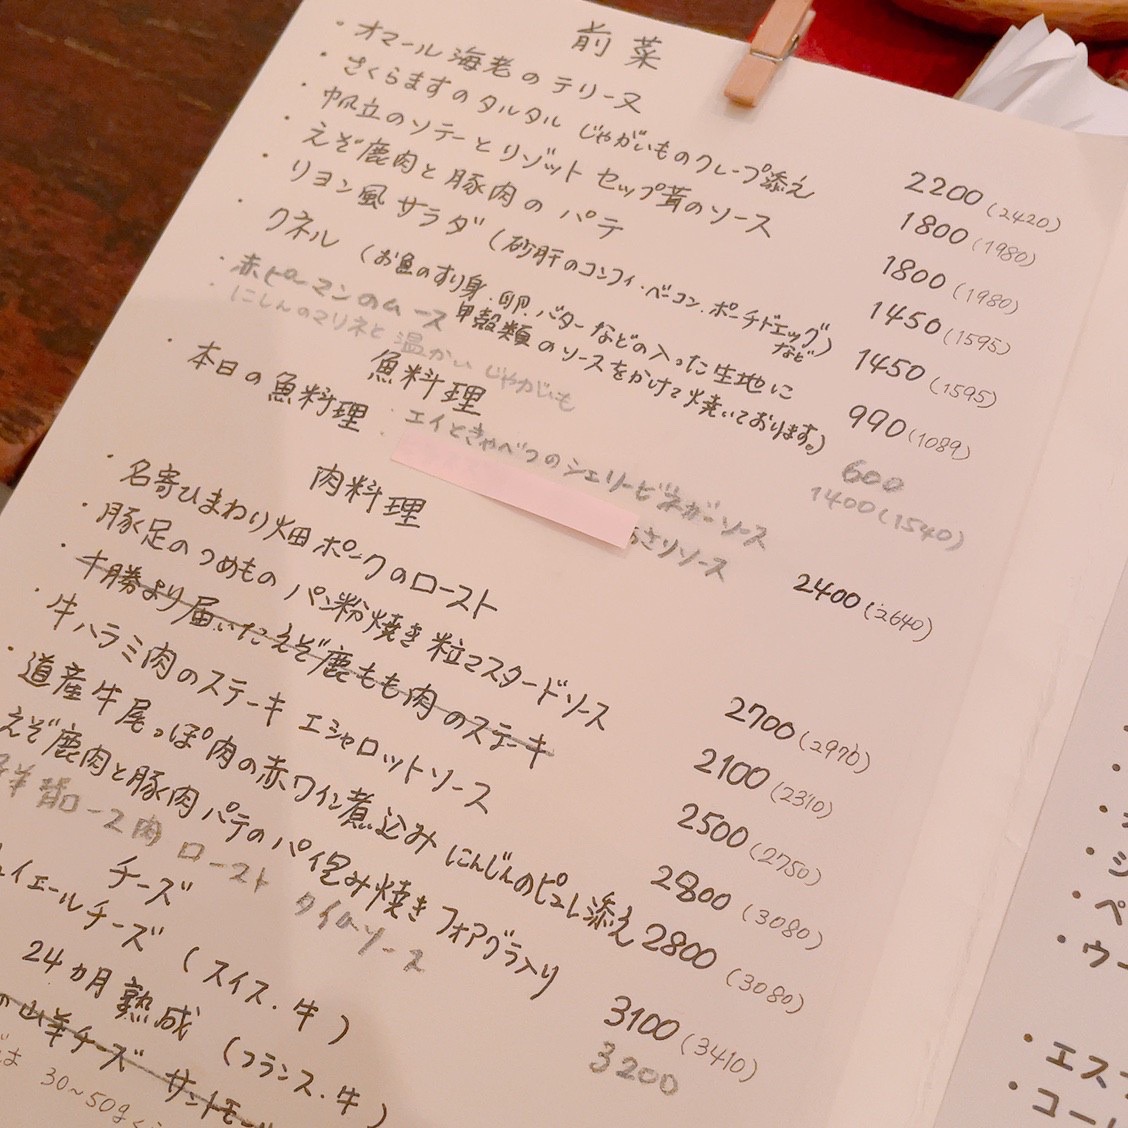 前菜
・オマール海老のテリーヌ 2200(2420)
・さくらますのタルタル じゃがいものクレープ添え 1800(1980)
・帆立のソテーとリゾット セップ茸のソース 1800(1980)
・えぞ鹿肉と豚肉の パテ 1450(1595)
・リヨン風 サラダ (砂肝のコンフィ・ベーコン、ポーチドエッグ など) 1450(1595)
・クネル (お魚のすり身・卵、バターなどの入った生地に 990(1089)
甲殻類のソースをかけて焼いております。)
・赤ピーマンのムース 600
・にしんのマリネと温かいじゃがいも 1400(1540)
魚料理
・本日の魚料理・エイときゃべつのシェリービネガーソース 2400(2640)
あさりソース
肉料理
・名寄ひまわり畑ポークのロースト 2700(2970)
・豚足のつめもの パン粉焼き 粒マスタードソース 2100(2310)
・十勝より届いたえぞ鹿もも肉のステーキ
・牛ハラミ肉のステーキ エシャロットソース 2500(2750)
・道産牛尾っぽ肉の赤ワイン煮込み にんじんのピュレ添え 2800(3080)
2800(3080)
えぞ鹿肉と豚肉パテのパイ包み焼き フォアグラ入り 3100(3410)
羊背ロース肉 ロースト タイムソース 3200
チーズ
イエールチーズ (スイス・牛)
24カ月熟成 (フランス・牛)
の山羊チーズ サントモー
は 30~50g
エス
コー